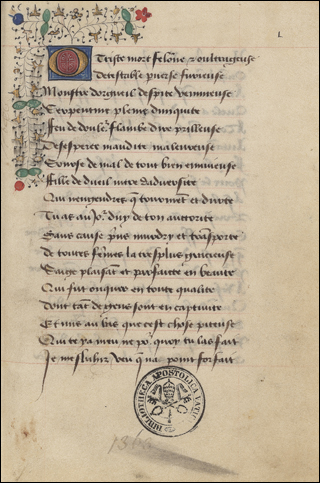 L
O Triste mort felone et oultrageuse
Detestable pverse furieuse
Monstre dorgueil despite venimeuse
Serpentine pleine diniquite
Feu de doule flambe dire perilleuse
Desesperee mauldite maleureuse
Sourse de mal de tout bien ennuieuse
Fille de dueil mere dadversite
Qui nengendres que tourment et durte
Tu as au jo duy de ton auctorite
Sans cause pris murdry et transporte
De toutes femes la tresplus gracieuse
Saige plaisat et parfaitte en beaute
Qui fut oncques en toute qualite
Dont tat de gens sont en captivite
Et mis au bas que cest chose piteuse
Qui te pa meu ne po quoy tu las fait
Je mesbahir veu q na point forfait
BIBLIOTHECA APOSTOLICA VATIC